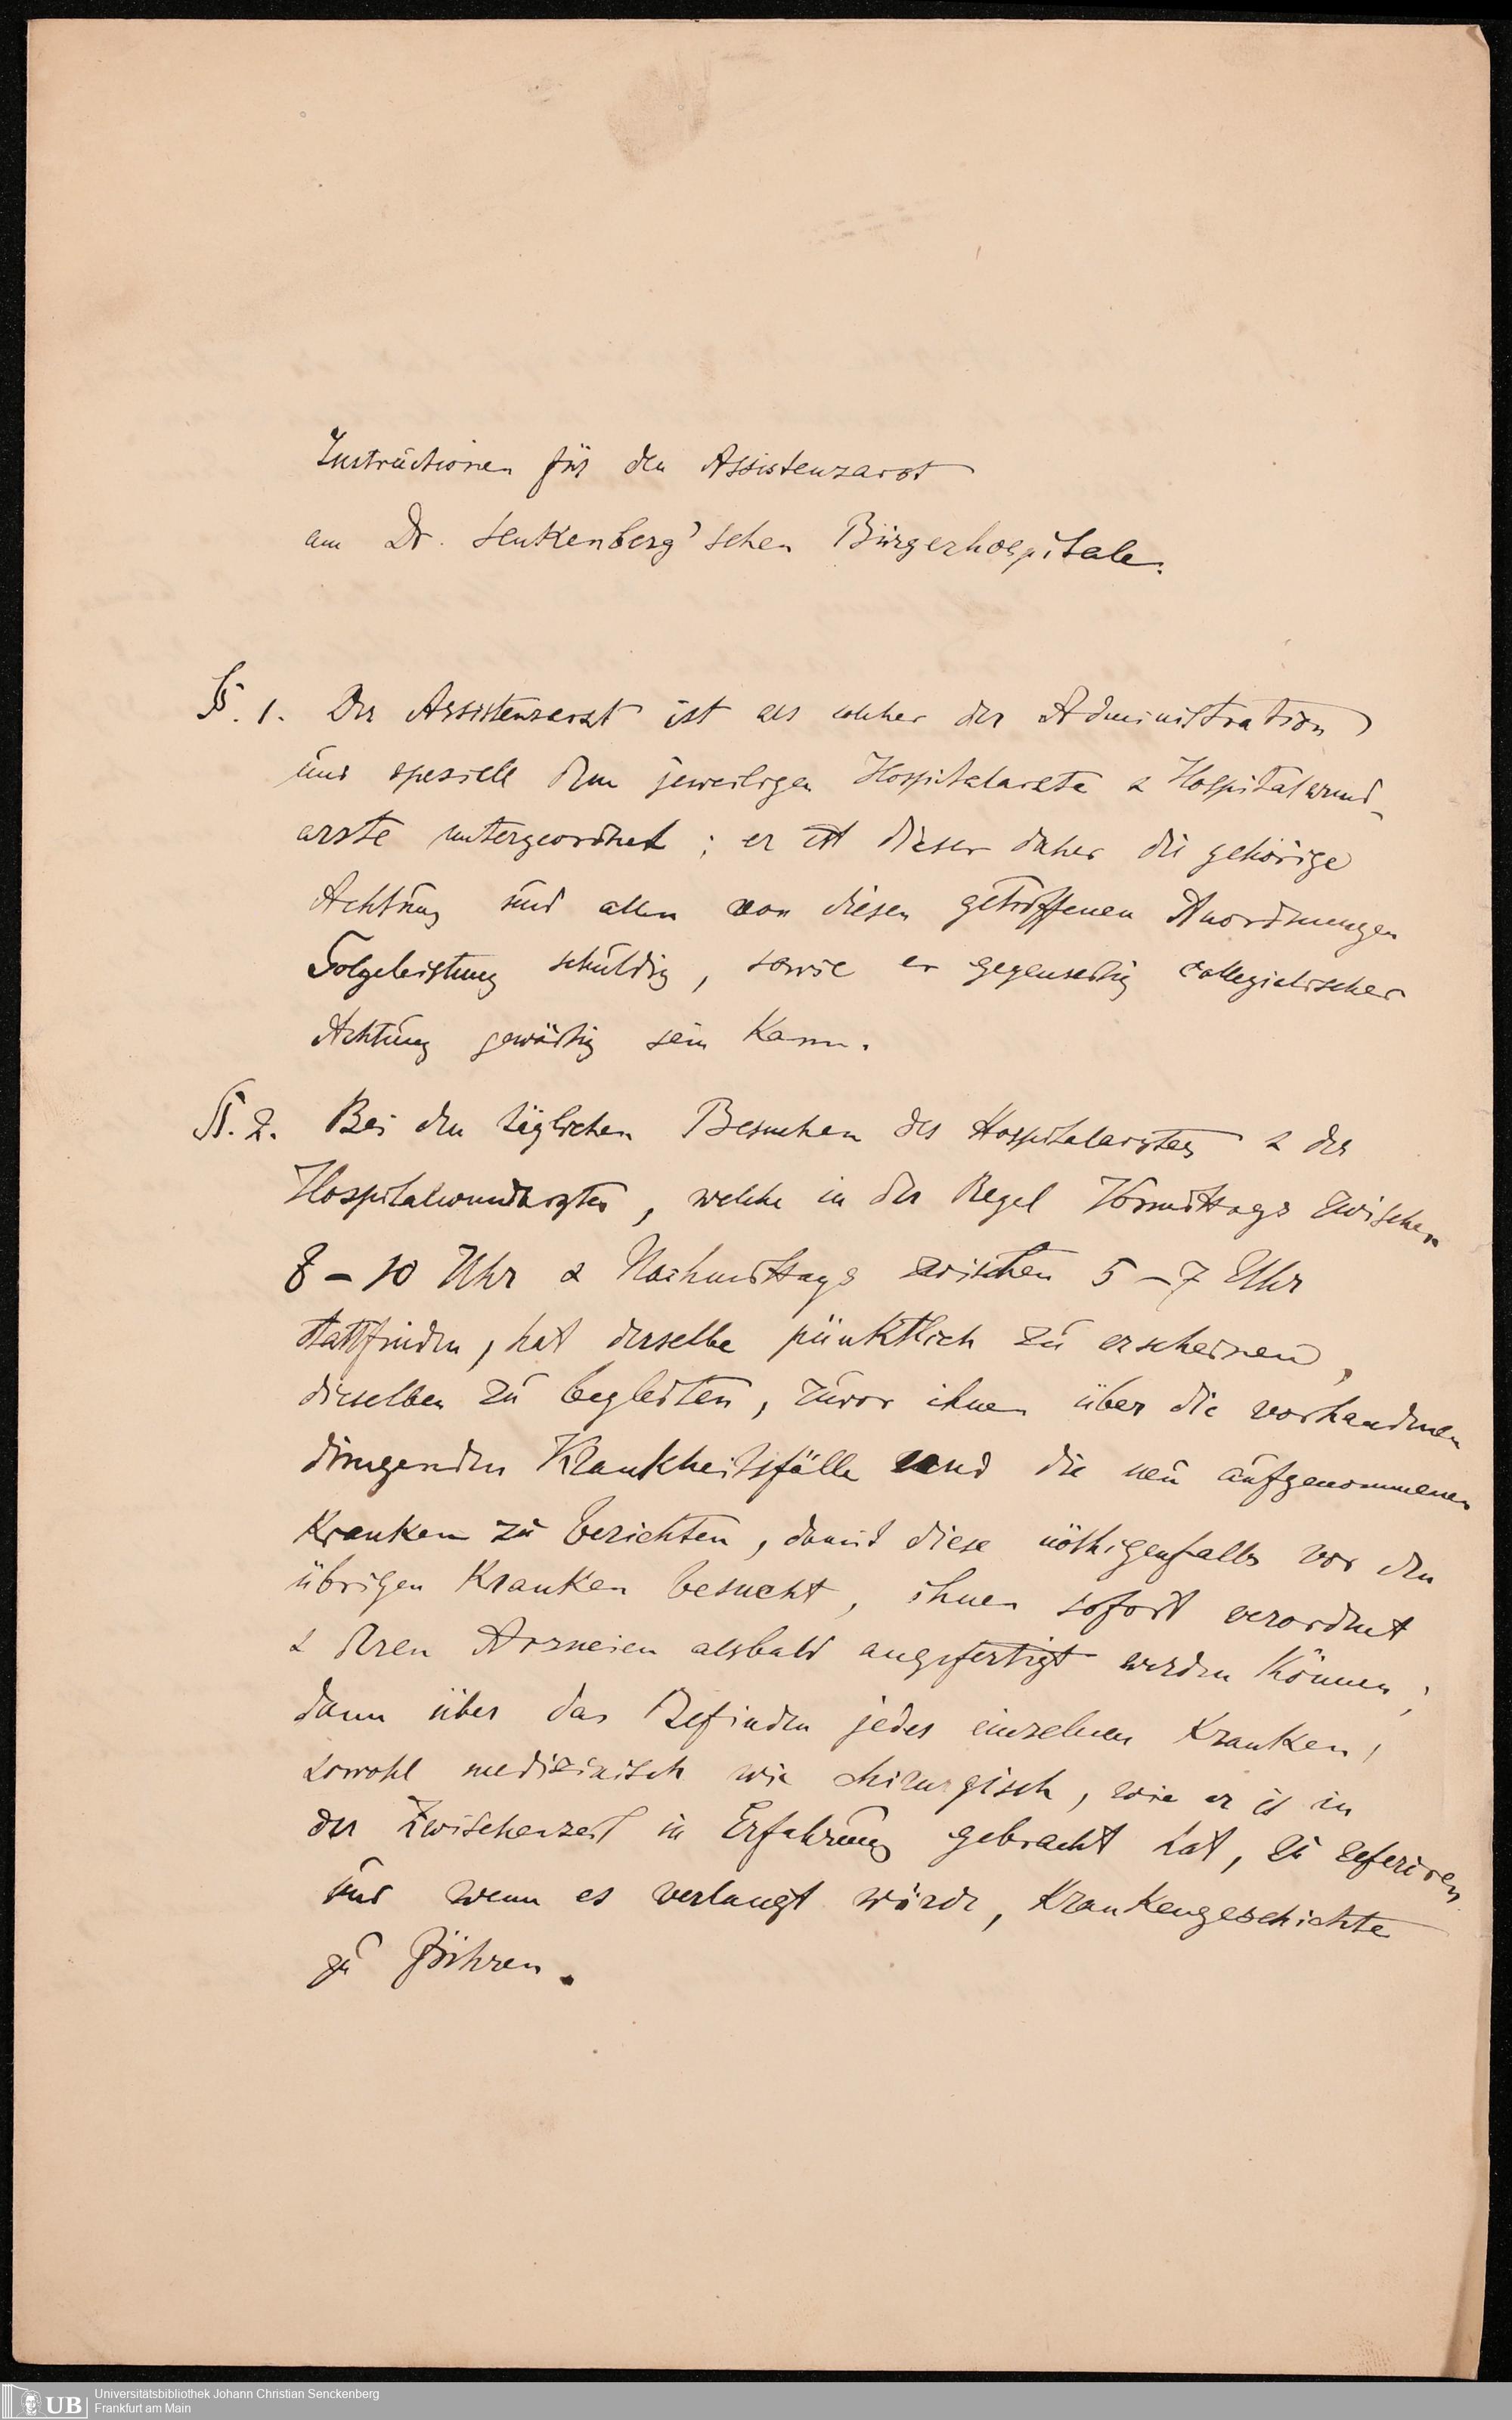 Instructionen für den Assistenzarzt
am Dr. Senkenberg'schen Bürgerhospitale.
§. 1. Der Assistenzarzt ist als solcher der Administration
und speziell dem jeweiligen Hospitalarzte & Hospitalwund-
arzte untergeordnet; er ist diesen daher die gehörige
Achtung und allen von diesen getroffenen Anordnungen
Folgeleistung schuldig, sowie er gegenseitig collegialischer
Achtung gewärtig sein kann.
§. 2. Bei den täglichen Besuchen des Hospitalarztes & des
Hospitalwundarztes, welche in der Regel Vormittags zwischen
8 – 10 Uhr & Nachmittags zwischen 5 – 7 Uhr
stattfinden, hat derselbe pünktlich zu erscheinen,
dieselben zu begleiten, zuvor ihnen über die vorhandenen
dringenden Krankheitsfälle und die neu aufgenommenen
Kranken zu berichten, damit diese nöthigenfalls vor den
übrigen Kranken besucht, ihnen sofort verordnet
& deren Arzneien alsbald angefertigt werden können;
dann über das Befinden jedes einzelnen Kranken,
sowohl medizinisch wie chirurgisch, wie er es in
der Zwischenzeit in Erfahrung gebracht hat, zu referiren
und wenn es verlangt würde, Krankengeschichte
zu führen.
UB
Universitätsbibliothek Johann Christian Senckenberg
Frankfurt am Main